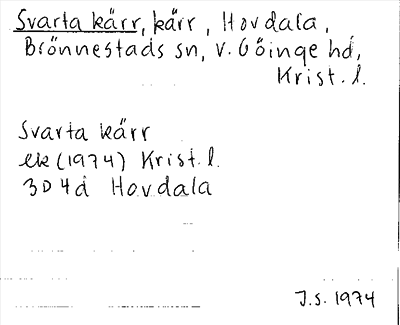 Svarta kärr, kärr, Hovdala,
Brönnestads sn, V. Göinge hd,
Krist. l.
Svarta kärr
ek (1974) Krist. l.
3D 4d Hovdala
J.S. 1974